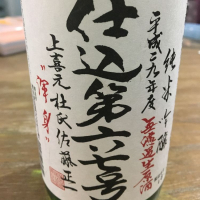 純米吟醸
平成二九年度
無濾過生原酒
仕込第六七号
上喜元杜氏佐藤正一
"渾身"